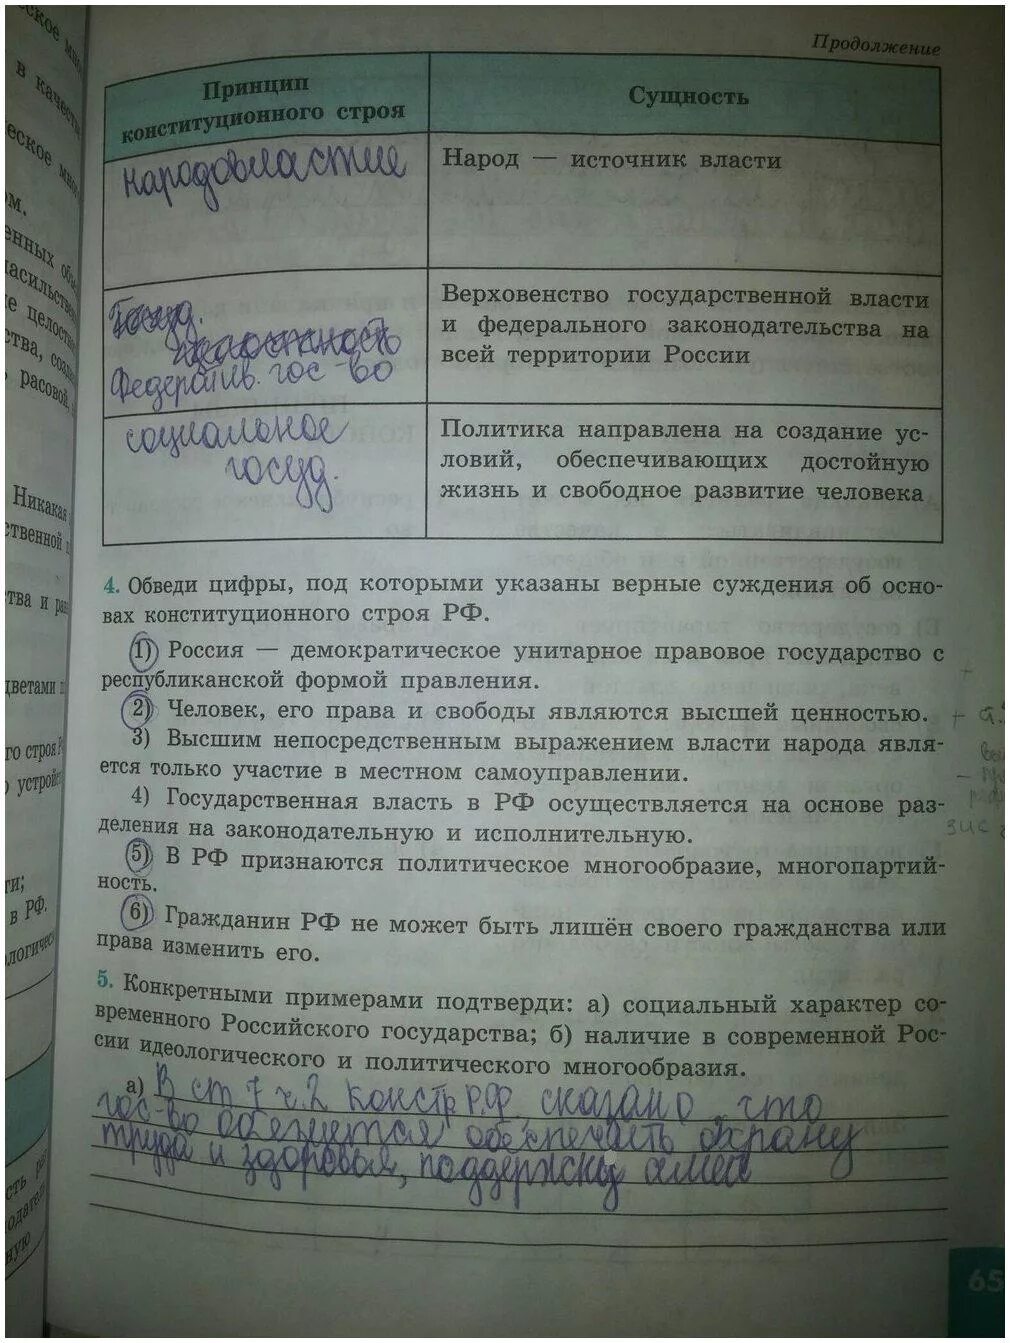 Продолжение
Принцип
конституционного строя
Сущность
народовластие
Народ — источник власти
Госуд.
целостность
Федератив. гос-во
Верховенство государственной власти
и федерального законодательства на
всей территории России
социальное
госуд.
Политика направлена на создание ус-
ловий, обеспечивающих достойную
жизнь и свободное развитие человека
4. Обведи цифры, под которыми указаны верные суждения об осно-
вах конституционного строя РФ.
1) Россия — демократическое унитарное правовое государство с
республиканской формой правления.
2) Человек, его права и свободы являются высшей ценностью.
3) Высшим непосредственным выражением власти народа явля-
ется только участие в местном самоуправлении.
4) Государственная власть в РФ осуществляется на основе раз-
деления на законодательную и исполнительную.
5) В РФ признаются политическое многообразие, многопартий-
ность.
6) Гражданин РФ не может быть лишён своего гражданства или
права изменить его.
5. Конкретными примерами подтверди: а) социальный характер со-
временного Российского государства; б) наличие в современной Рос-
сии идеологического и политического многообразия.
а) В ст 7 ч.2 констр Р.Ф. сказано что
гос-во обязуется обеспечать охрану
труда и здоровья, поддержку
65
Никакая
в РФ.